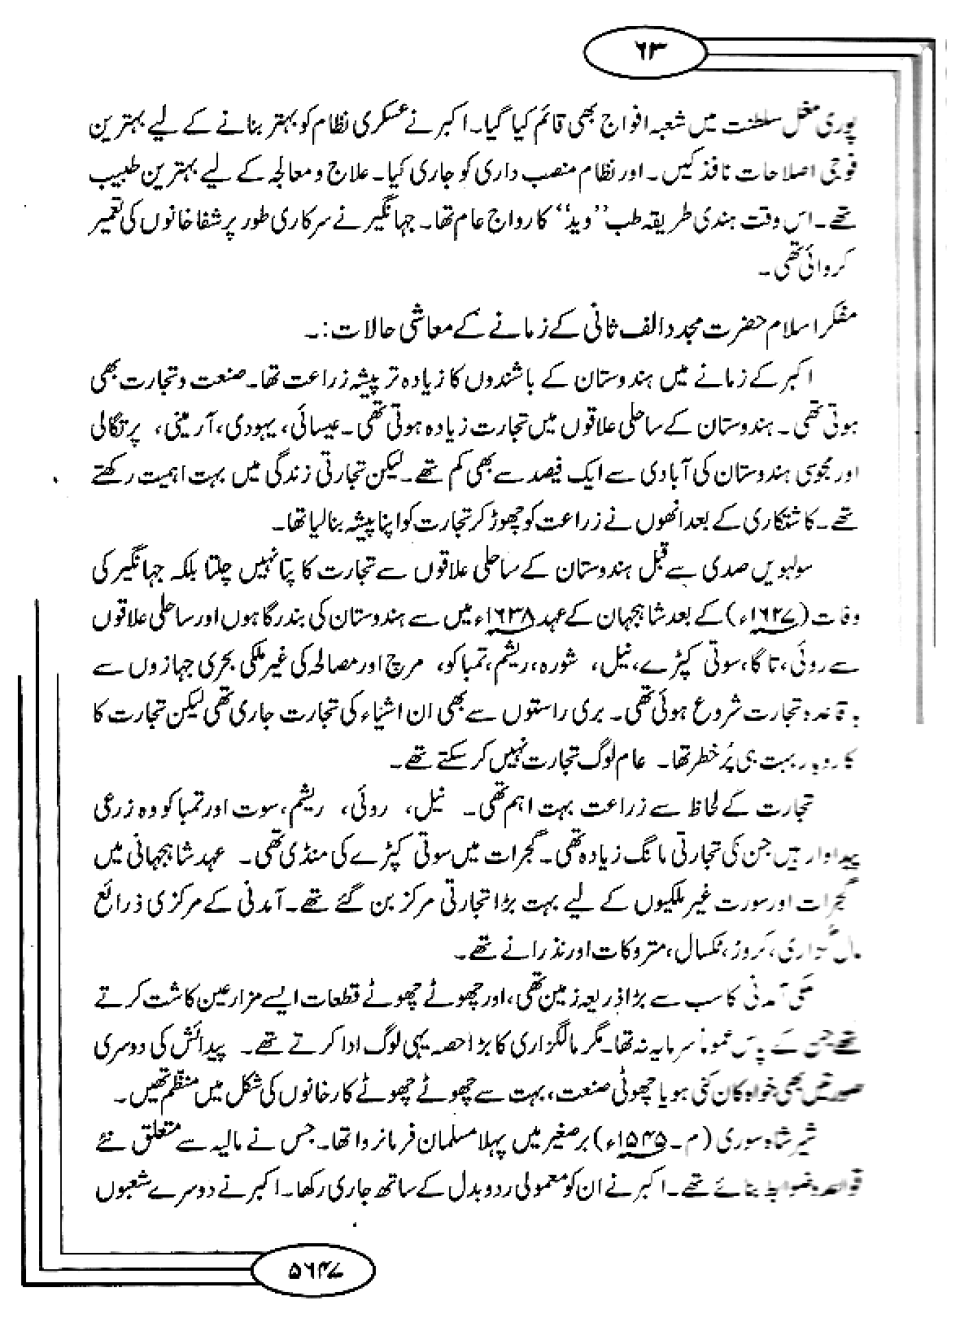 ۶۳
پوری مغل سلطنت میں شعبہ افواج بھی قائم کیا گیا۔ اکبر نے عسکری نظام کو بہتر بنانے کے لیے بہترین
فوجی اصلاحات نافذ کیں۔ اور نظام منصب داری کو جاری کیا۔ علاج و معالجہ کے لیے بہترین طبیب
تھے۔ اس وقت ہندی طریقہ طب ’’وید‘‘ کا رواج عام تھا۔ جہانگیر نے سرکاری طور پر شفا خانوں کی تعمیر
کروائی تھی۔
مفکر اسلام حضرت مجدد الف ثانی کے زمانے کے معاشی حالات:۔
اکبر کے زمانے میں ہندوستان کے باشندوں کا زیادہ تر پیشہ زراعت تھا۔ صنعت و تجارت بھی
ہوتی تھی۔ ہندوستان کے ساحلی علاقوں میں تجارت زیادہ ہوتی تھی۔ عیسائی، یہودی، آرمینی، پرتگالی
اور مجوسی ہندوستان کی آبادی سے ایک فیصد سے بھی کم تھے۔ لیکن تجارتی زندگی میں بہت اہمیت رکھتے
تھے۔ کاشتکاری کے بعد انھوں نے زراعت کو چھوڑ کر تجارت کو اپنا پیشہ بنا لیا تھا۔
سولہویں صدی سے قبل ہندوستان کے ساحلی علاقوں سے تجارت کا پتا نہیں چلتا بلکہ جہانگیر کی
وفات (۱۶۲۷ء) کے بعد شاہجہان کے عہد ۱۶۳۸ء میں سے ہندوستان کی بندرگاہوں اور ساحلی علاقوں
سے روئی، تاگا، سوتی کپڑے، نیل، شورہ، ریشم، تمباکو، مرچ اور مصالحہ کی غیر ملکی بحری جہازوں سے
باقاعدہ تجارت شروع ہوئی تھی۔ بری راستوں سے بھی ان اشیاء کی تجارت جاری تھی لیکن تجارت کا
کاروبار بہت ہی پُر خطر تھا۔ عام لوگ تجارت نہیں کر سکتے تھے۔
تجارت کے لحاظ سے زراعت بہت اہم تھی۔ نیل، روئی، ریشم، سوت اور تمباکو وہ زرعی
پیداوار ہیں جن کی تجارتی مانگ زیادہ تھی۔ گجرات میں سوتی کپڑے کی منڈی تھی۔ عہد شاہجہانی میں
گجرات اور سورت غیر ملکیوں کے لیے بہت بڑا تجارتی مرکز بن گئے تھے۔ آمدنی کے مرکزی ذرائع
مال گزاری، کروز، ٹکسال، متروکات اور نذرانے تھے۔
ملکی آمدنی کا سب سے بڑا ذریعہ زمین تھی، اور چھوٹے چھوٹے قطعات ایسے مزارعین کاشت کرتے
تھے جن کے پاس عموماً سرمایہ نہ تھا۔ مگر مالگزاری کا بڑا حصہ یہی لوگ ادا کرتے تھے۔ پیدائش کی دوسری
صورتیں بھی خواہ کان کنی ہو یا چھوٹی صنعت، بہت سے چھوٹے چھوٹے کارخانوں کی شکل میں منظّم تھیں۔
شیر شاہ سوری (م۔ ۱۵۴۵ء) برصغیر میں پہلا مسلمان فرمانروا تھا۔ جس نے مالیہ سے متعلق نئے
قواعد و ضوابط بنائے تھے۔ اکبر نے ان کو معمولی ردوبدل کے ساتھ جاری رکھا۔ اکبر نے دوسرے شعبوں
۵۶۴۷